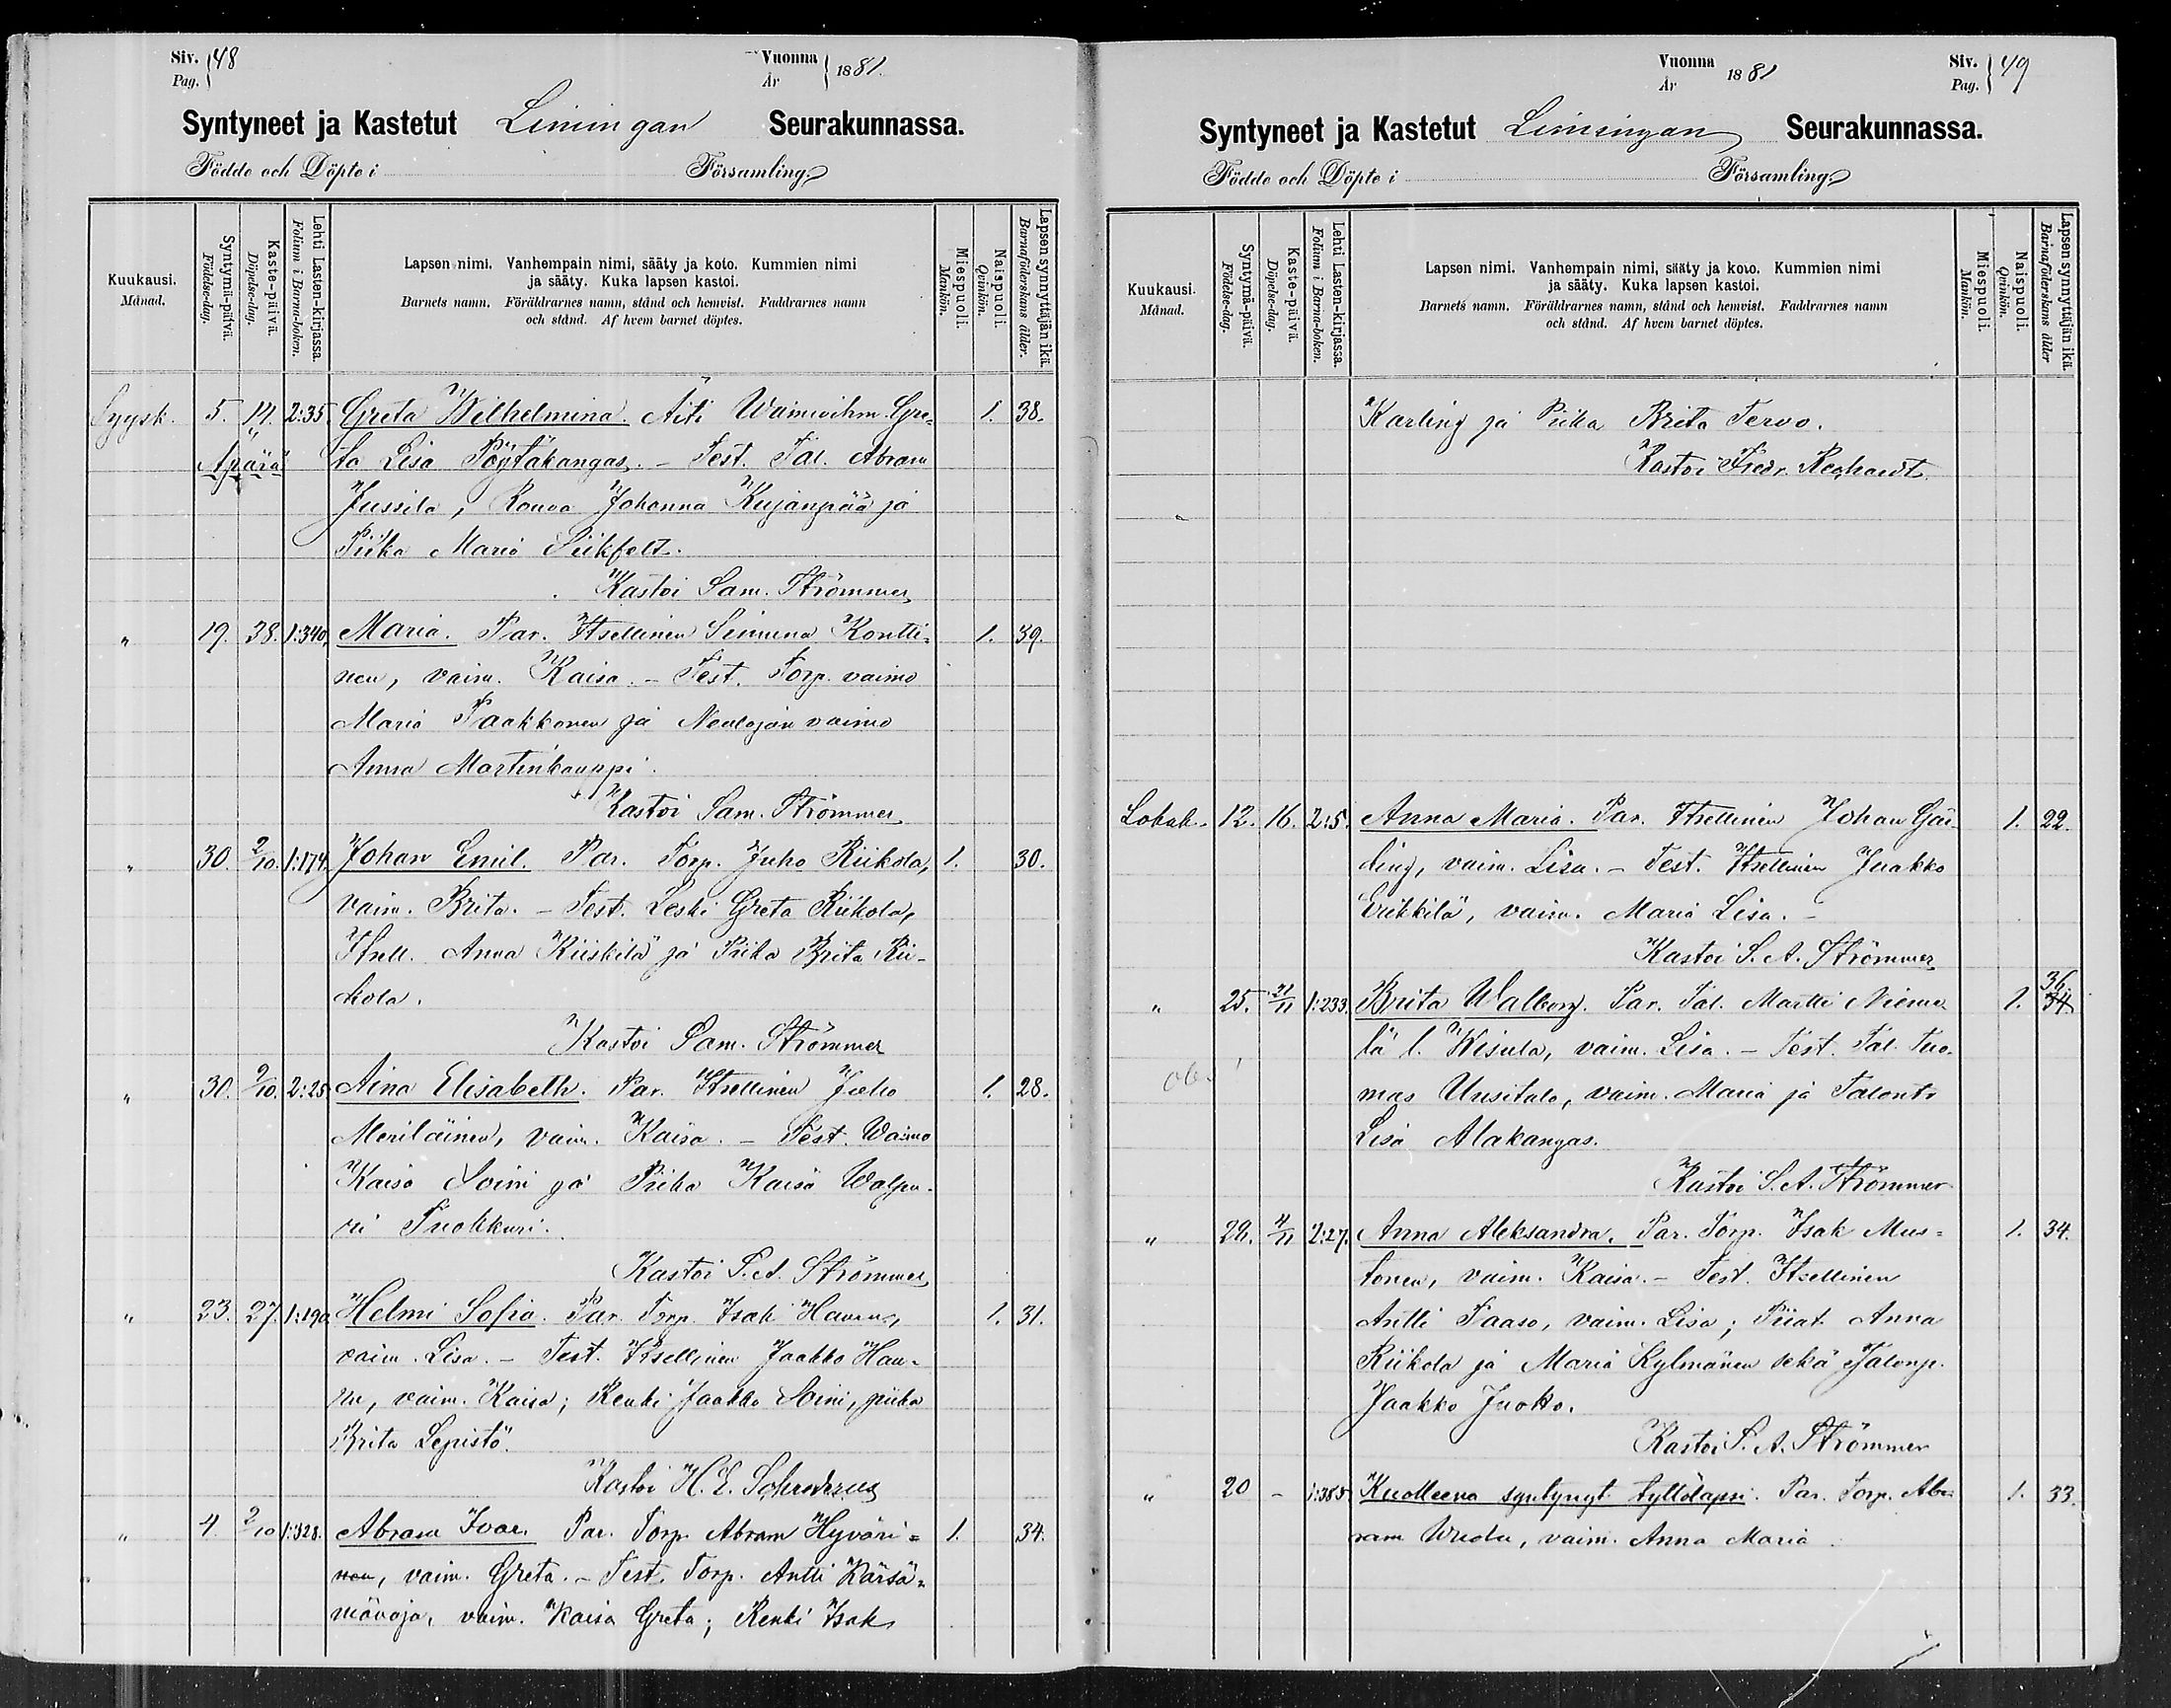 Siv. 48
Pag.
Vuonna
År 1881.
Syntyneet ja Kastetut Limingan Seurakunnassa.
Födde och Döpte i Församling
Kuukausi.
Månad.
Syntymä-päivä.
Födelse-dag.
Kaste-päivä.
Döpelse-dag.
Lehti Lasten-kirjassa.
Folium i Barna-boken.
Lapsen nimi. Vanhempain nimi, sääty ja koto. Kummien nimi
ja sääty. Kuka lapsen kastoi.
Barnets namn. Föräldrarnes namn, stånd och hemvist. Faddrarnes namn
och stånd. Af hvem barnet döptes.
Miespuoli.
Mankön.
Naispuoli.
Qvinkön.
Lapsen synnyttäjän ikä.
Barnaföderskans ålder.
Syysk. 5. 14. 2:35. Greta Wilhelmina. Äiti Waimoihm. Gre- 1. 38.
Äpärä ta Lisa Pöytäkangas. - Test. Tal. Abram
Jussila, Rouva Johanna Kujanpää ja
Piika Maria Siikfelt.
Kastoi Sam. Strömmer
" 19. 38. 1:340. Maria. Par. Itsellinen Simuna Kontti- 1. 39.
nen, vaim. Kaisa. - Test. Torp. vaimo
Maria Paakkonen ja Neulojan vaimo
Anna Martinkauppi.
Kastoi Sam. Strömmer
" 30. 2/10. 1:174. Johan Emil. Par. Torp. Juho Riikola, 1. 30.
vaim. Brita. - Test. Leski Greta Riikola,
Itsell. Anna Kiiskilä ja Piika Brita Rii-
kola.
Kastoi Sam. Strömmer
" 30. 9/10. 2:25 Aina Elisabeth. Par. Itsellinen Juho 1. 28.
Meriläinen, vaim. Kaisa. - Test. Waimo
Kaisa Soini ja Piika Kaisa Walpu-
ri Tuokkuri.
Kastoi S. A. Strömmer
" 23. 27. 1:190 Helmi Sofia. Par. Torp. Isak Hannu, 1. 31.
vaim. Lisa. - Test. Itsellinen Jaakko Han-
nu, vaim. Kaisa; Renki Jaakko Soini, piika
Brita Lepistö.
Kastoi H. E. Schroderus
" 4. 2/10 1:328. Abram Ivar. Par. Torp. Abram Hyväri- 1. 34.
nen, vaim. Greta. - Test. Torp. Antti Kärsä-
mänoja, vaim. Kaisa Greta; Renki Isak
Vuonna
År 1881
Siv. 49
Pag.
Syntyneet ja Kastetut Limingan Seurakunnassa.
Födde och Döpte i Församling
Kuukausi.
Månad.
Syntymä-päivä.
Födelse-dag.
Kaste-päivä.
Döpelse-dag.
Lehti Lasten-kirjassa.
Folium i Barna-boken.
Lapsen nimi. Vanhempain nimi, sääty ja koto. Kummien nimi
ja sääty. Kuka lapsen kastoi.
Barnets namn. Föräldrarnes namn, stånd och hemvist. Faddrarnes namn
och stånd. Af hvem barnet döptes.
Miespuoli.
Mankön.
Naispuoli.
Qvinkön.
Lapsen synnyttäjän ikä.
Barnaföderskans ålder
Karling ja Piika Brita Tervo.
Kastoi Fredr.
Lokak. 12. 16. 2:5. Anna Maria. Par. Itsellinen Johan 1. 22.
ling, vaim. Lisa. - Test. Itsellinen Jaakko
Erkkilä, vaim. Maria Lisa. -
Kastoi S. A. Strömmer
36.
" 25. 21/11 1:233. Brita Walborg. Par. Tal. Martti Nieme- 1. 34
lä l. Wisula, vaim. Lisa. - Test. Tal. Tuo-
obs! mas Uusitalo, vaim. Maria ja Talont.
Lisa Alakangas.
Kastoi S. A. Strömmer
" 29. 4/11 2:27. Anna Aleksandra. Par. Torp. Isak Mus- 1. 34.
tonen, vaim. Kaisa. - Test. Itsellinen
Antti Paaso, vaim. Lisa; Piiat Anna
Riikola ja Maria Kylmänen sekä Talonp.
Jaakko Juokko.
Kastoi S. A. Strömmer
" 20 - 1:385. Kuolleena syntynyt tyttölapsi. Par. Torp. Ab- 1. 33.
ram vaim. Anna Maria